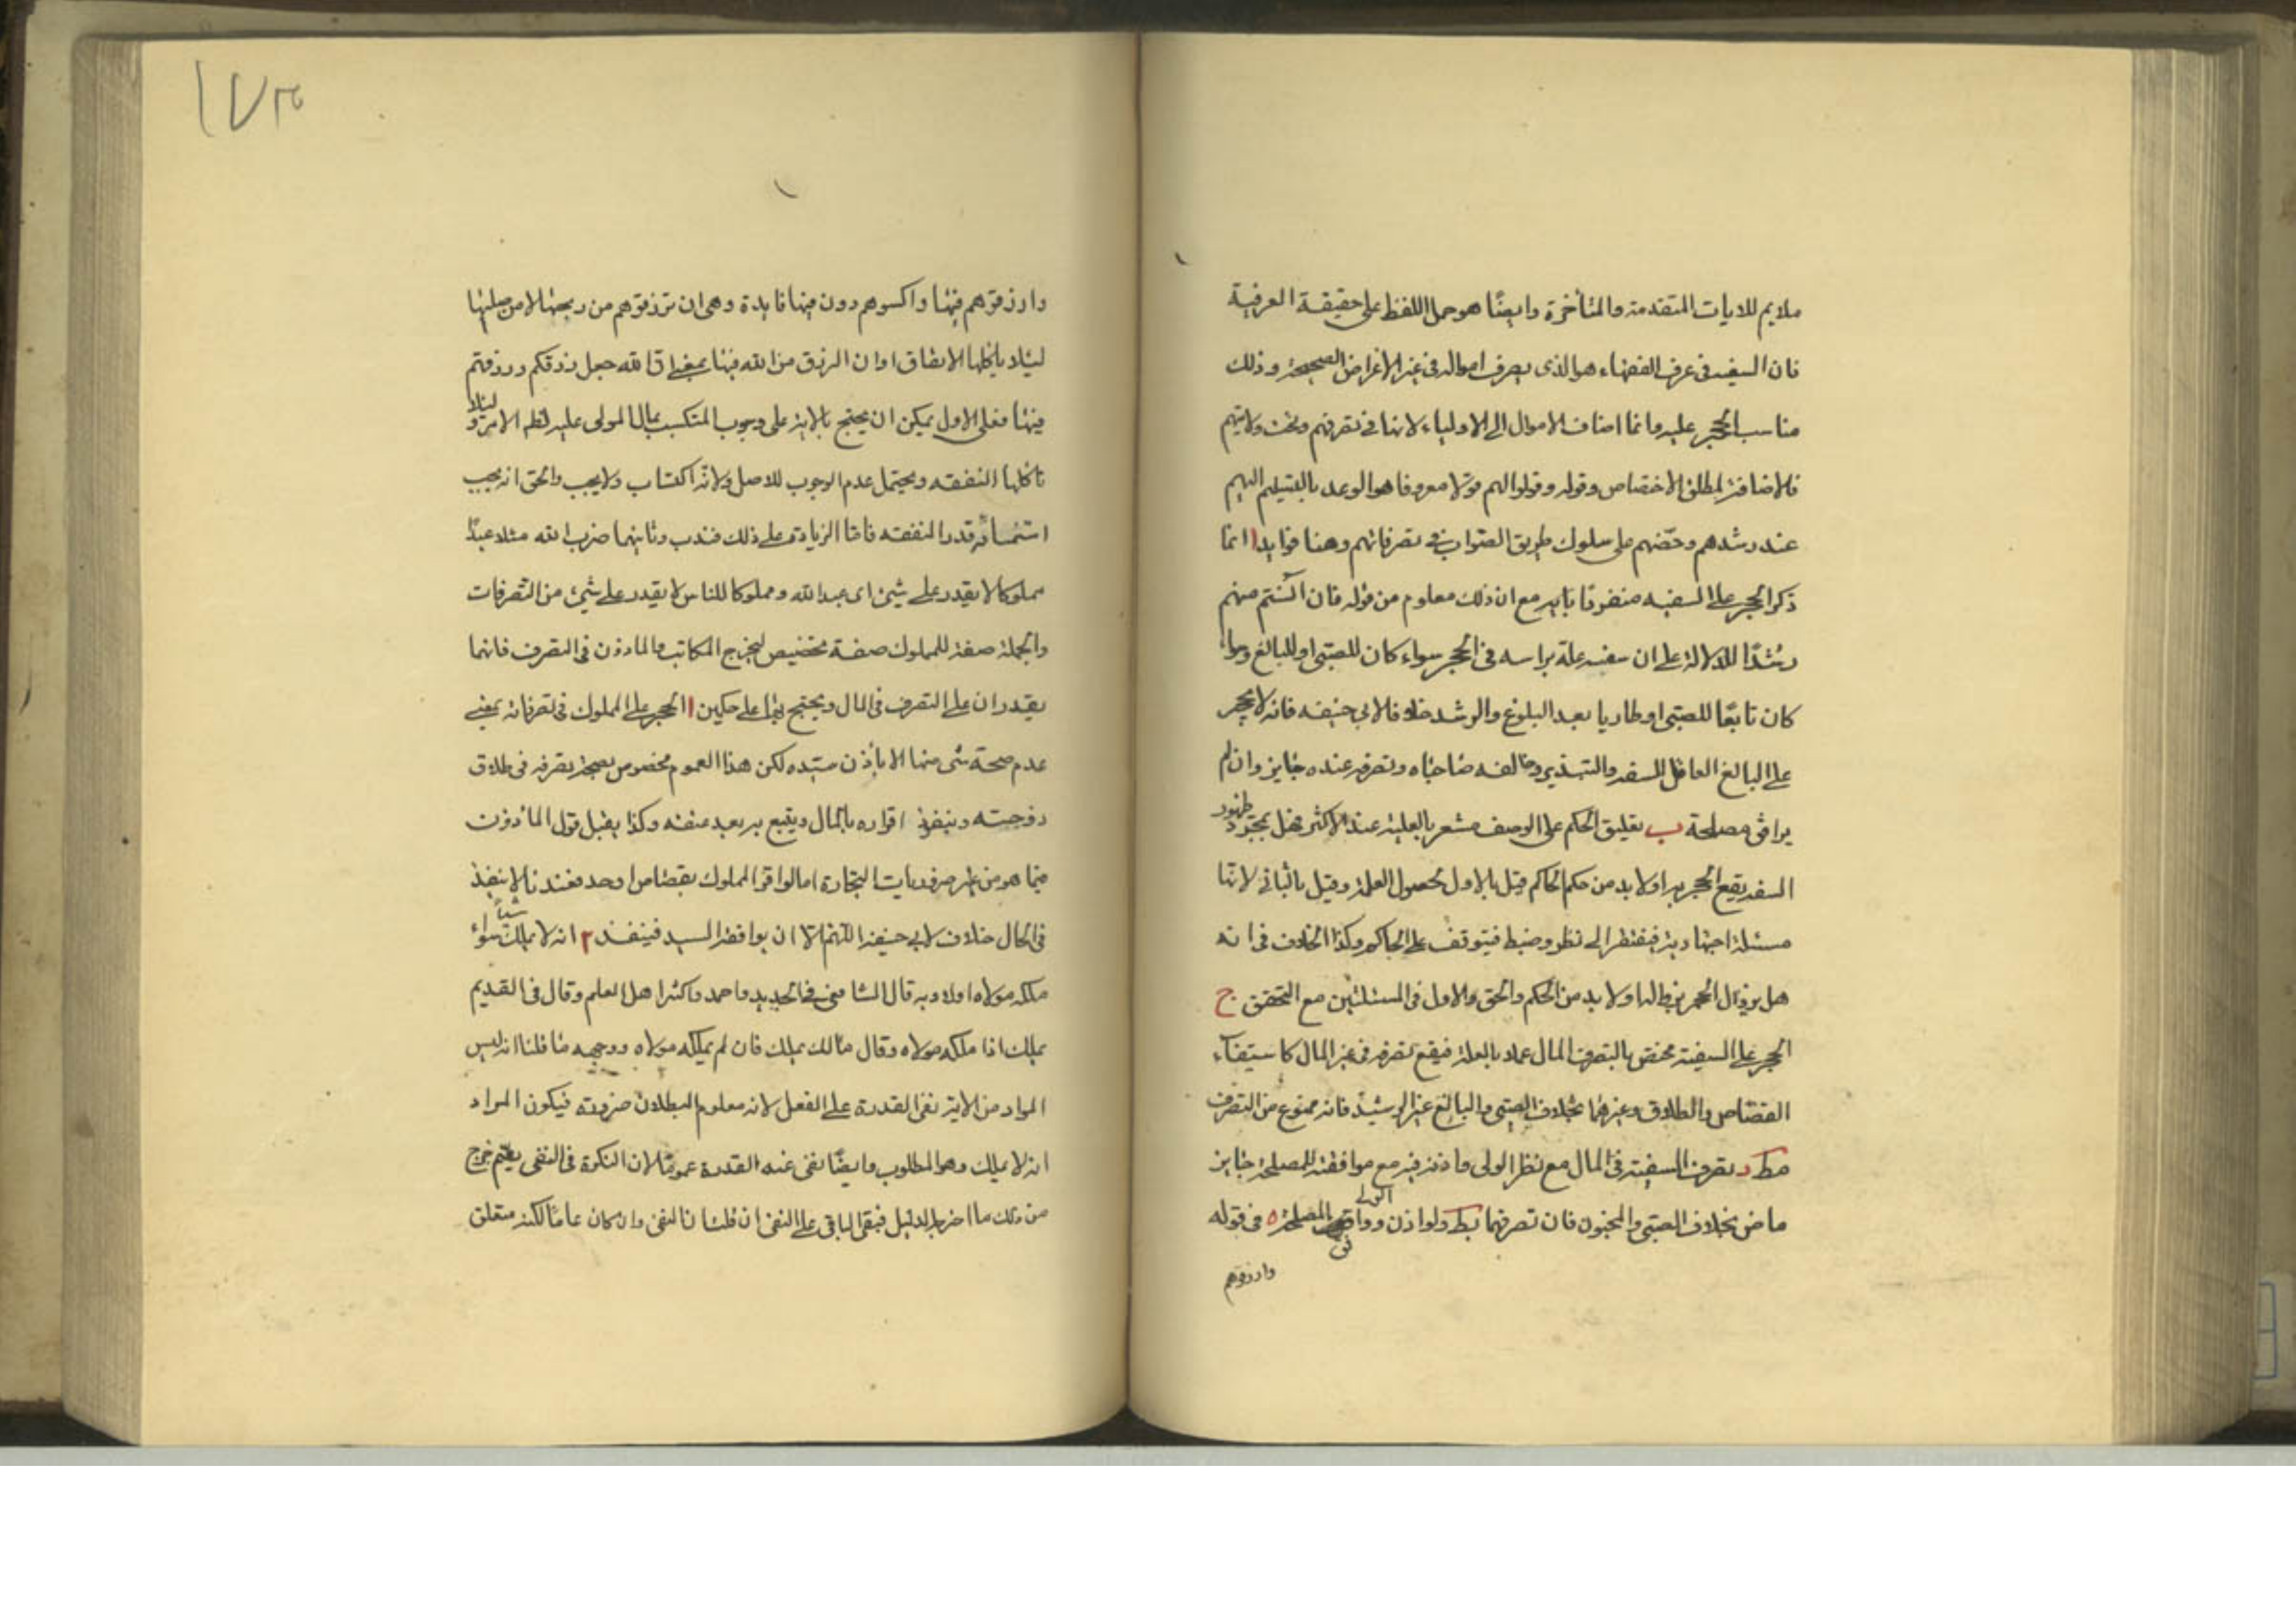 ملايم للايات المتقدمة والمتأخرة وايضًا هو حمل اللفظ على حقيقة العرفية
فان السفيه فى عرف الفقهاء هو الذى يصرف امواله فى غير الاغراض الصحيحة وذلك
مناسب الحجر عليه وانما اضاف الاموال الى الاولياء لانها فى تصرفهم وتحت ولايتهم
فالاضافة لمطلق الاختصاص وقوله وقولوا لهم قولا معروفا هو الوعد بالتسليم اليهم
عند رشدهم وحضّهم على سلوك طريق الصواب فى تصرفاتهم وهنا فوايد ا انما
ذكر الحجر على السفيه منفردًا بايه مع ان ذلك معلوم من قوله فان آنستم منهم
رشدًا للدلالة على ان سفهه علة براسه فى الحجر سواء كان للصبى او للبالغ وسواء
كان تابعًا للصبى او طاريا بعد البلوغ والرشد خلافا لابى حنيفه فانه لا يحجر
على البالغ العاقل للسفه والتبذير وخالفه صاحباه وتصرفه عنده جايز وان لم
يوافق مصلحة ب تعليق الحكم على الوصف مشعر بالعلية عند الاكثر فهل بمجرد ظهور
السفه يقع الحجر به او لا بد من حكم الحاكم قيل بالاول لحصول العلة وقيل بالثانى لانها
مسئلة اجتهادية فيفتقر الى نظر وضبط فيتوقف على الحاكم وكذا الخلاف فى انه
هل يزول الحجر بزوالها ولا بد من الحكم والحق والاول فى المسئلتين مع التحقق ج
الحجر على السفيه مختص بالتصرف المال عملا بالعلة فيقع تصرفه فى غير المال كاستيفاء
القصاص والطلاق وغيرهما بخلاف الصبى والبالغ غير الرشيد فانه ممنوع من التصرف
مط د تصرف السفيه فى المال مع نظر الولى واذنه فيه مع موافقته للمصلحة جايز
ماض بخلاف الصبى والمجنون فان تصرفهما بط ولو اذن الولى ووافق المصلحة ه فى قوله
وارزقوهم
١٧٣
وارزقوهم فيها واكسوهم دون منها فايدة وهى ان ترزقوهم من ربحها لا من صلبها
ليلا ياكلها الانفاق او ان الرزق من الله فيها بمعنى ان الله جعل رزقكم ورزقهم
فيها فعلى الاول يمكن ان يحتج بالاية على وجوب التكسب بمال المولى عليه لظ الامر وليلا
تاكلها النفقه ويحتمل عدم الوجوب للاصل ولانه اكتساب ولا يجب والحق انه يجب
استنماء قدر النفقه فاما الزيادة على ذلك فندب وثانيهما ضرب الله مثلا عبدًا
مملوكا لا يقدر على شئ اى عبد الله ومملوكا للناس لا يقدر على شئ من التصرفات
والجملة صفة للمملوك صفة تخصيص ليخرج المكاتب والماذون فى التصرف فانهما
يقدران على التصرف فى المال ويحتج بها على حكمين ا الحجر على المملوك فى تصرفاته بمعنى
عدم صحة شئ منها الا باذن سيده لكن هذا العموم مخصوص بصحة تصرفه فى طلاق
زوجته وينفذ اقراره بالمال ويتبع به بعد عتقه وكذا يقبل قول الماذون
فيما هو من ضروريات التجارة اما لو اقر المملوك بقصاص او حد فعندنا لا ينفذ
فى الحال خلاف لابى حنيفه اللهم الا ان يوافقه السيد فينفذ ٢ انه لا يملك شيئاً سواء
ملكه مولاه او لا وبه قال الشافعى فى الجديد واحمد واكثر اهل العلم وقال فى القديم
يملك اذا ملكه مولاه وقال مالك يملك فان لم يملكه مولاه ووجهه ما قلنا انه ليس
المراد من الاية نفى القدرة على الفعل لانه معلوم البطلان ضرورة فيكون المراد
انه لا يملك وهو المطلوب وايضًا نفى عنه القدرة عمومًا لان النكرة فى النفى يعم خرج
من ذلك ما اخرجه الدليل فبقى الباقى على النفى ان قلت النفى وان كان عامًا لكنه متعلق